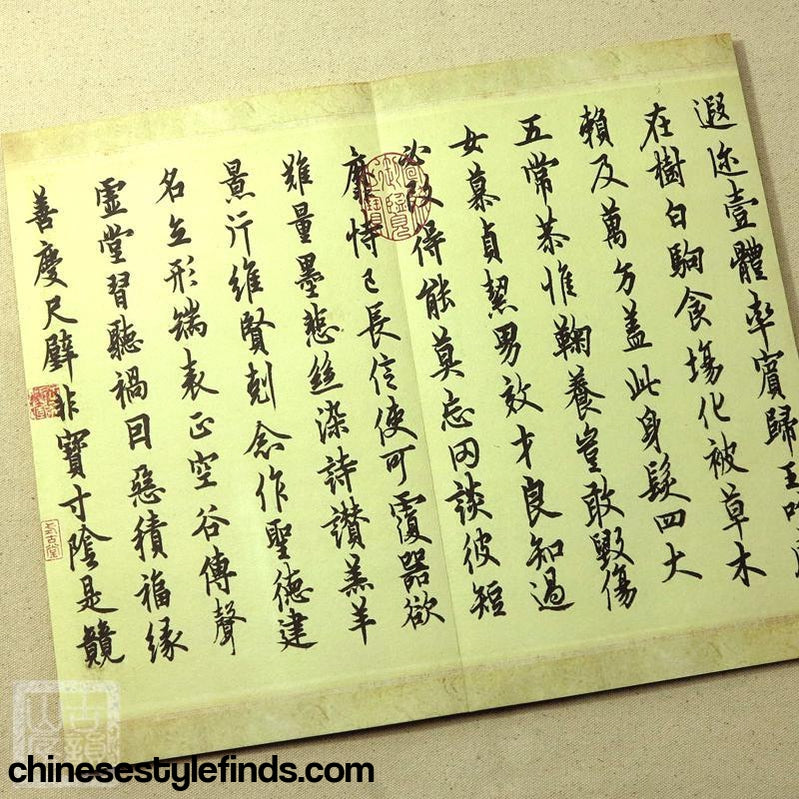 遐迩壹體率賓歸王
在樹白駒食場化被草木
賴及萬方蓋此身髮四大
五常恭惟鞠養豈敢毀傷
女慕貞絜男效才良知過
必改得能莫忘罔談彼短
靡恃己長信使可覆器欲
難量墨悲絲染詩讚羔羊
景行維賢剋念作聖德建
名立形端表正空谷傳聲
虛堂習聽禍因惡積福緣
善慶尺璧非寶寸陰是競
chinesestylefinds.com